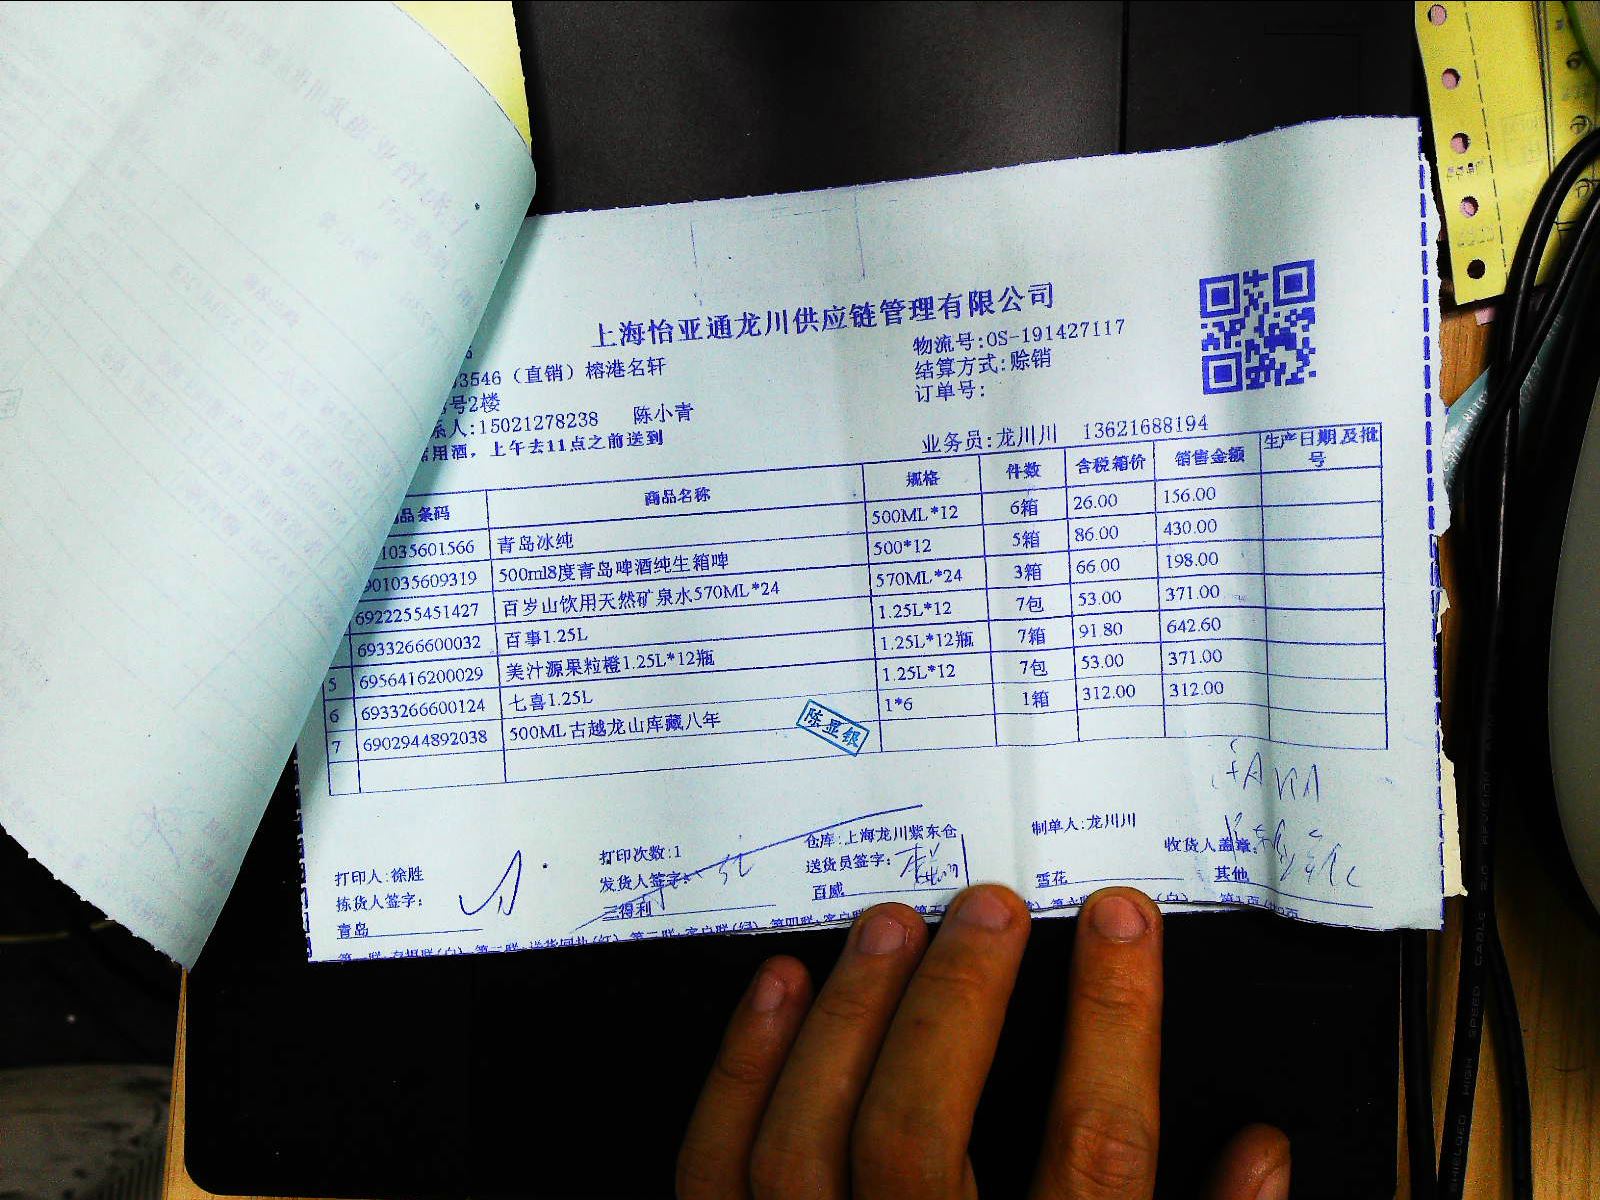 上海怡亚通龙川供应链管理有限公司
物流号:OS-191427117
3546（直销）榕港名轩
结算方式:赊销
号2楼
订单号:
系人:15021278238 陈小青
业务员:龙川川 13621688194
用酒，上午去11点之前送到
品条码 商品名称 规格 件数 含税箱价 销售金额 生产日期及批号
1035601566 青岛冰纯 500ML*12 6箱 26.00 156.00
901035609319 500ml8度青岛啤酒纯生箱啤 500*12 5箱 86.00 430.00
6922255451427 百岁山饮用天然矿泉水570ML*24 570ML*24 3箱 66.00 198.00
6933266600032 百事1.25L 1.25L*12 7包 53.00 371.00
5 6956416200029 美汁源果粒橙1.25L*12瓶 1.25L*12瓶 7箱 91.80 642.60
6 6933266600124 七喜1.25L 1.25L*12 7包 53.00 371.00
7 6902944892038 500ML古越龙山库藏八年 1*6 1箱 312.00 312.00
陈显银
打印人:徐胜 打印次数:1 仓库:上海龙川紫东仓 制单人:龙川川
拣货人签字: 发货人签字: 送货员签字: 收货人盖章:
青岛 三得利 百威 雪花 其他